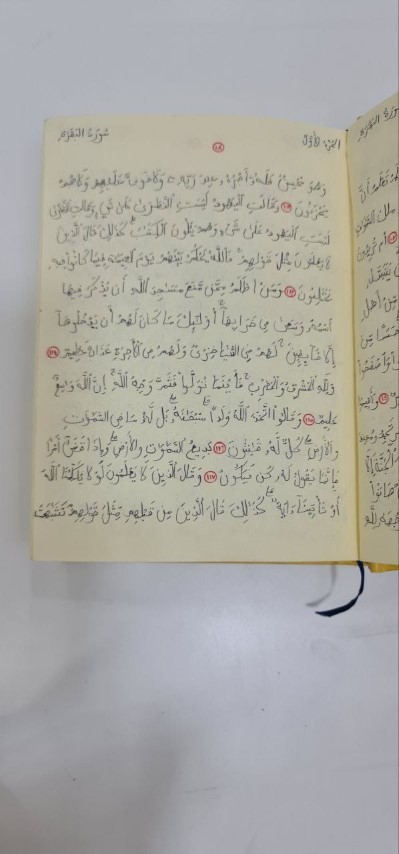 الجزء الأول
١٨
سورة البقرة
وهو محسن فله أجره عند ربه ولا خوف عليهم ولا هم
يحزنون ١١٢ وقالت اليهود ليست النصارى على شيء وقالت النصارى
ليست اليهود على شيء وهم يتلون الكتب كذلك قال الذين
لا يعلمون مثل قولهم فالله يحكم بينهم يوم القيمة فيما كانوا فيه
يختلفون ١١٣ ومن أظلم ممن منع مسجد الله أن يذكر فيها
اسمه وسعى في خرابها أولئك ما كان لهم أن يدخلوها
إلا خائفين لهم في الدنيا خزي ولهم في الأخرة عذاب عظيم ١١٤
ولله المشرق والمغرب فأينما تولوا فثم وجه الله إن الله واسع
عليم ١١٥ وقالوا اتخذ الله ولدا سبحنه بل له ما في السموت
والأرض كل له قنتون ١١٦ بديع السموت والأرض وإذا قضى أمرا
فإنما يقول له كن فيكون ١١٧ وقال الذين لا يعلمون لولا يكلمنا الله
أو تأتينا ءاية كذلك قال الذين من قبلهم مثل قولهم تشبهت
سورة البقرة